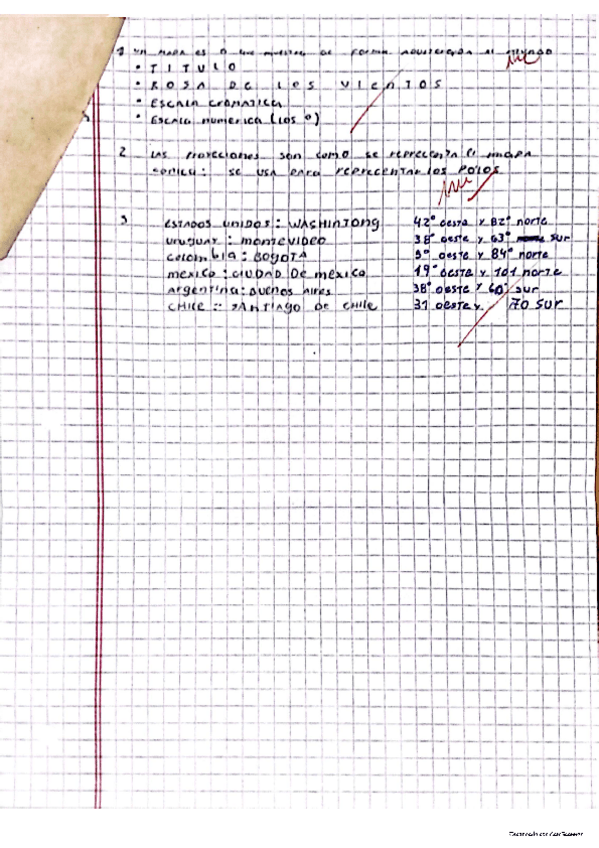 1 un mapa es o que muestra de forma al mundo
• TITULO
• ROSA DE LOS VIENTOS
• ESCALA CROMATICA
• ESCALA numerica (LOS °)
2 LAS Proyecciones son como se representa el mapa
conica: se usa para representar los Polos
3 ESTADOS UNIDOS: WASHINTONG 42° oeste y 82° norte
uruguay: montevideo 38° oeste y 63° sur
colombia: BOGOTA 5° oeste y 84° norte
mexico: CIUDAD De mexico 19° oeste y 101 norte
argentina: Buenos Aires 38° oeste y 60° sur
CHILE:: SANTIAGO DE CHILE 31 oeste y 70 sur